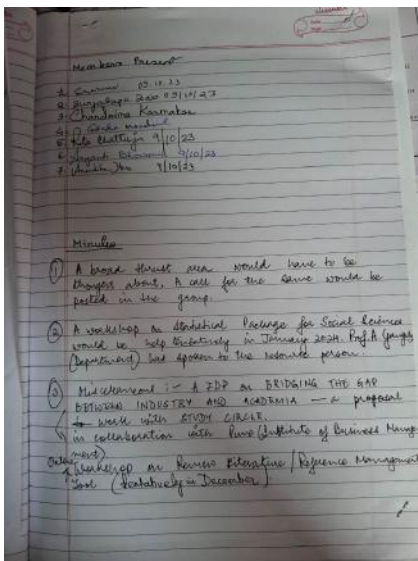 Members Present
1. 09.10.23
2. Suryatapa 09/10/23
3. Chandrima Karmakar
4.
5. Chatterjee 9/10/23
6. 9/10/23
7. 9/10/23
Minutes
① A broad thrust area would have to be
thought about. A call for the same would be
posted in the group.
② A workshop on Statistical Package for Social Sciences
would be help tentatively in January 2024. Prof. A
(Department) has spoken to the resource person.
③ Miscellaneous :- A FDP on BRIDGING THE GAP
BETWEEN INDUSTRY AND ACADEMIA — a proposal
to work with STUDY CIRCLE.
in collaboration with Pune (Institute of Business Manage
ment)
Online Workshop on Review Literature / Reference Management
Tool (tentatively in December)